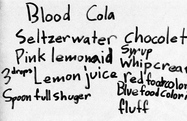 Blood Cola
Seltzerwater chocolet
Syrup
Pink lemonaid whipcream
3 drops Lemon juice red foodcolor
Spoon full shuger Blue food color
fluff